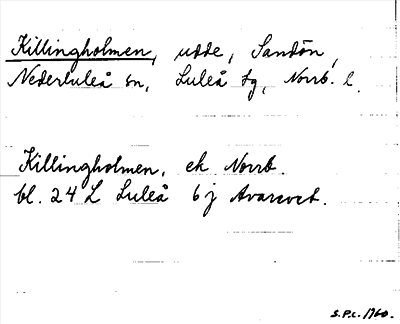 Killingholmen, udde, Sandön,
Nederluleå sn, Luleå tg, Norrb. l.
Killingholmen, ek Norrb.
bl. 24 L Luleå 6 j Avarevet.
S.P.c. 1960.